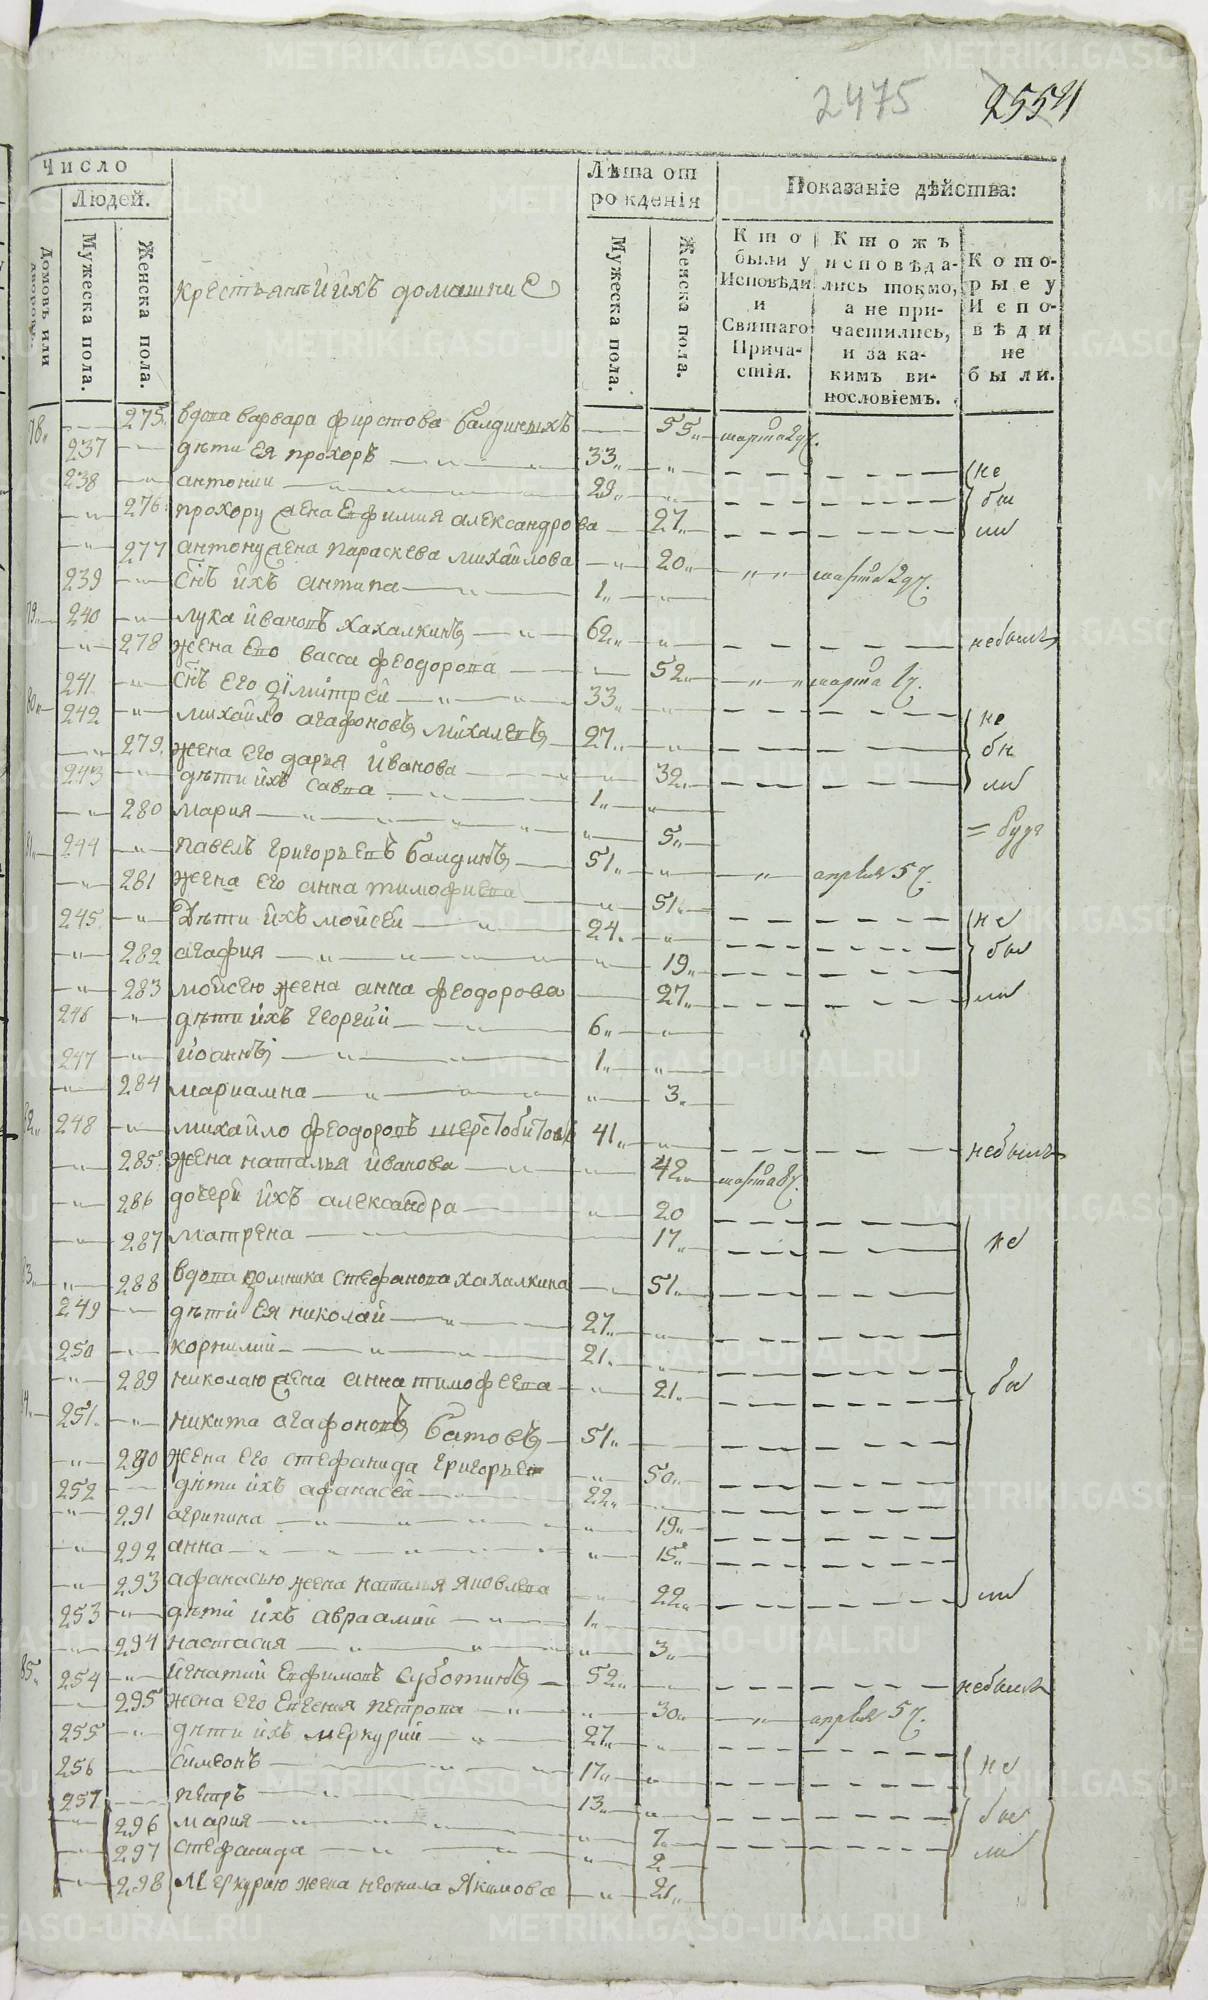 2475 2554
Число
Людей.
Домовъ или дворовъ.
Мужеска пола.
Женска пола.
крестьянѣ и ихъ домашни
Лѣта от рожденія
Мужеска пола.
Женска пола.
Показаніе дѣйства:
Кто были у Исповѣди и Святаго Причастія.
Ктожъ исповѣдались токмо, а не причастились, и за какимъ винословіемъ.
Которые у Исповѣди не были.
78 275 вдова варвара фирстова балдиныхъ 55 марта 29ч.
237 дѣти ея прохоръ 33 не
238 антонии 29 бы
276 прохору жена Ефимия александрова 27 ли
277 антону жена параскева михайлова 20 марта 29ч.
239 снъ ихъ антипа 1
79 240 лука ивановъ хахалкинъ 62 небылъ
278 жена его васса феодорова 52 марта 1ч.
241 снъ его димитрей 33
80 242 михайло агафоновъ михалевъ 27 не
279 жена его дарья иванова 32 бы
243 дѣти ихъ савва 1 ли
280 мария 5
81 244 павелъ григорьевъ балдинъ 51 апрѣля 5ч.
281 жена его анна тимофиева 51
245 Дѣти ихъ мойсей 24 не
282 агафия 19 бы
283 мойсею жена анна феодорова 27 ли
246 дѣти ихъ георгий 6
247 иоаннъ 1
284 мариамна 3
82 248 михайло феодоровъ шерстобитовъ 41 небылъ
285 жена наталья иванова 42 марта 8ч.
286 дочери ихъ александра 20
287 матрена 17 не
83 288 вдова домника стефанова хахалкина 51
249 дѣти ея николай 27
250 корнилий 21
289 николаю жена анна тимофеева 21 бы
84 251 никита агафоновъ батовъ 51
290 жена его стефанида григорьев 50
252 дѣти ихъ афанасей 22
291 агрипина 19
292 анна 15
293 афанасью жена наталья яковлева 22 ли
253 дѣти ихъ авраамий 1
294 настасия 3
85 254 игнатий Ефимовъ суботинъ 52 небылъ
295 жена его Евгения петрова 30 апрѣля 5ч.
255 дѣти ихъ меркурий 27
256 симеонъ 17 не
257 петръ 13
296 мария 7 бы
297 стефанида 2 ли
298 меркурию жена неонила Якимова 21
METRIKI.GASO-URAL.RU